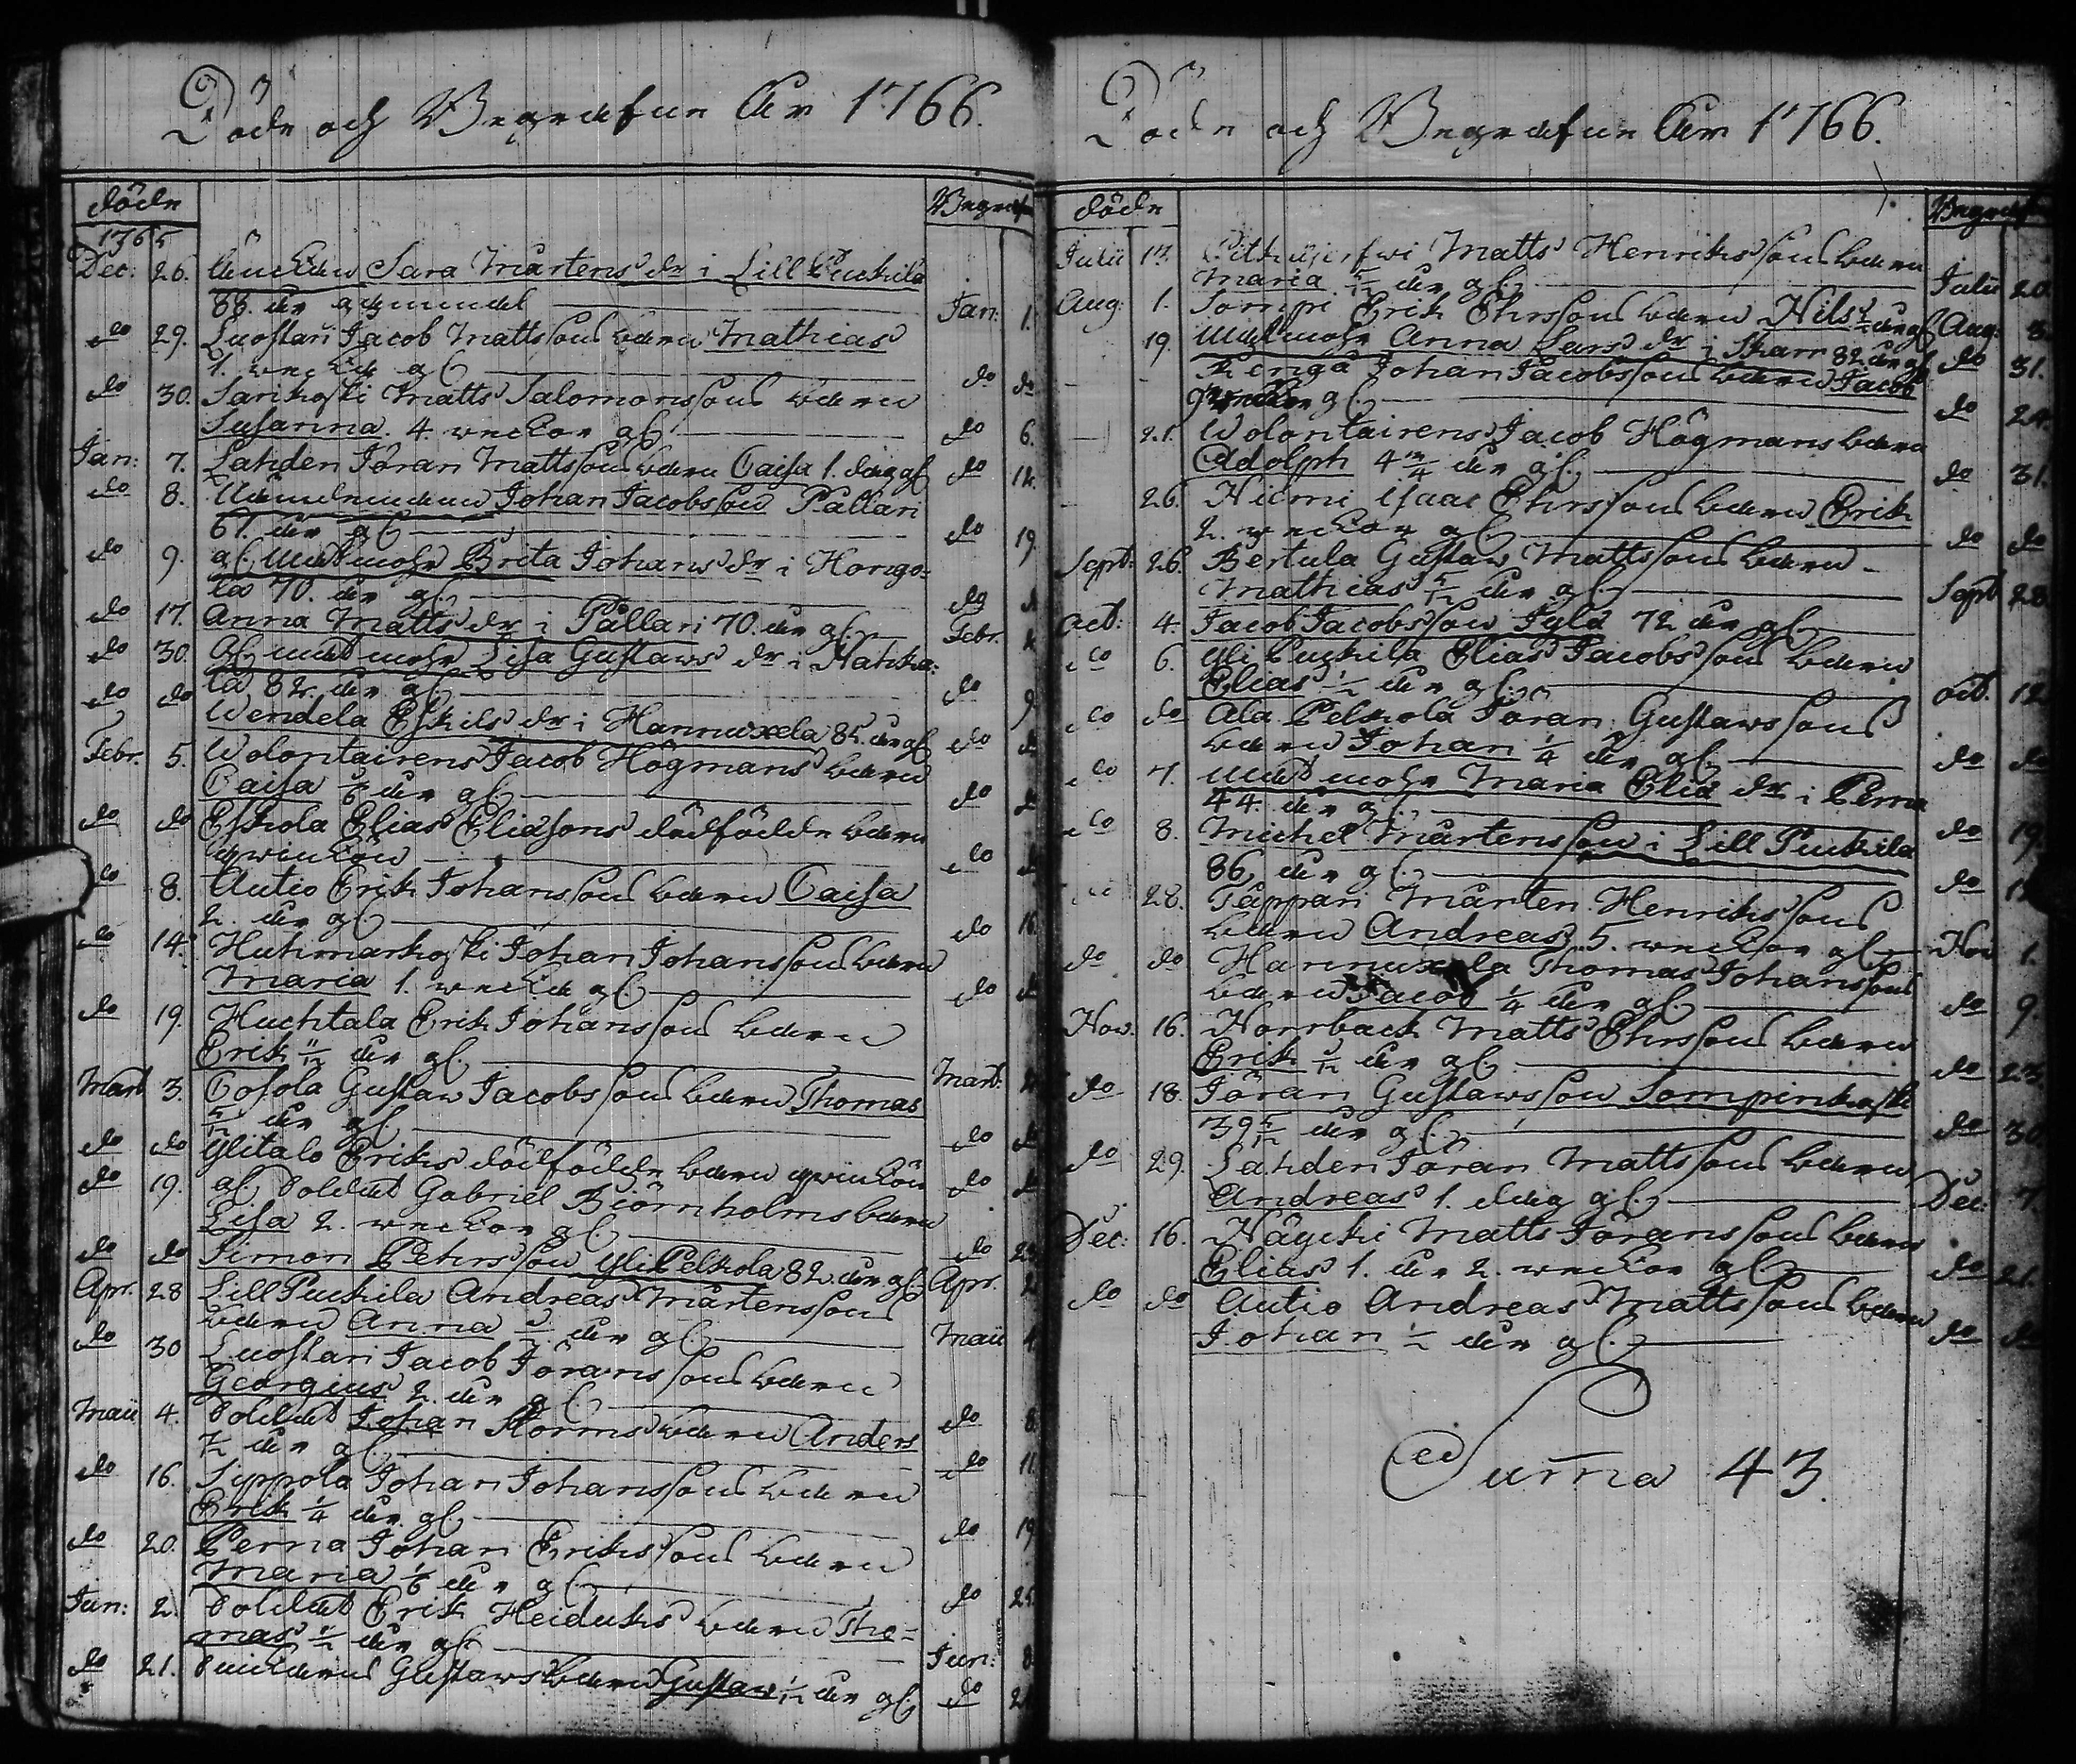 Döde och Begrafne År 1766.
döde Begrafne
1765
Dec: 26. Änckan Sara Mårtens dr i Lill Puckila
88. år gammal Jan: 1.
do 29. Luostari Jacob Mattssons barn Mathias
1. wecka gl do do
do 30. Sarikoski Matts Salomonssons barn
Susanna. 4. weckor gl. do 6.
Jan: 7. Lahden Jöran Mattssons barn Caisa 1. dag gl do 12.
do 8. Johan Jacobsson Pållari
67. år gl do 19.
do 9. gl. madmohr Brita Johans dr i Hongo=
la 70. år gl. do
do 17. Anna Matts dr i Pållari 70. år gl. Febr.
do 30. Gl madmohr Lisa Gustaws dr i
la 82. år gl. do 9.
do do Wendela Eskils dr i Hannuxela 82. år gl do
Febr. 5. Wolontairens Jacob Högmans barn
Caisa 1/6 år gl. do
do do Eskola Elias Eliasons dödfödde barn
qwinkön do
do 8. Autio Erik Johanssons barn Caisa
2. år gl. do 16.
do 14. Huhmarkoski Johan Johanssons barn
Maria 1. wecka gl. do
do 19. Huchtala Erik Johanssons barn
Erik 11/12 år gl. Mart:
Mart 3. Cosola Gustaw Jacobssons barn Thomas
5/12 år gl. do
do do Ylitalo Eriks dödfödde barn qwinkön do
do 19. gl Soldat Gabriel Biörnholms barn
Lisa 2. weckor gl. do 23.
do do Simon Pehrsson Yli Pelkola 82. år gl. Apr.
Apr. 28 Lill Puckila Andreas Mårtenssons
barn Anna år gl. Maii 4.
do 30 Luostari Jacob Jöranssons barn
Georgius 2. år gl. do 8.
Maii 4. Soldat Johan Storms barn Anders
1/2 år gl do 11.
do 16. Sippola Johan Johanssons barn
Erik 1/4 år gl. do 19.
do 20. Perna Johan Erikssons barn
Maria 1/6 år gl. do 25.
Jun: 2. Soldat Erik Heiduks barn Tho=
mas år gl. Jun: 8.
do 21. Gustaws barn Gustaw 1/12 år gl. do
Döde och Begrafne År 1766.
döde Begrafne
Julii 17. Pitkäjerfwi Matts Henrikssons barn
Maria 5/12 år gl. Julii 20.
Aug: 1. Sompi Erik Ehrssons barn Nils år gl Aug: 3.
19. Madmohr Anna Lars dr i Skarr 82 år gl do 31.
Renga Johan Jacobssons barn Jacob
weckor gl. do 24.
21. Wolontairens Jacob Högmans barn
Adolph 4 3/4 år gl. do 31.
26. Niemi Isaac Ehrssons barn Erik
2. weckor gl. do do
Sept: 26. Bertula Gustaw Mattssons barn
Mathias 5/12 år gl. Sept 28.
Oct: 4. Jacob Jacobsson Jylä 72 år gl
do 6. Yli Puckila Elias Jacobssons barn
Elias 1/2 år gl. Oct. 12.
do do Ala Pelkola Jöran Gustawssons
barn Johan 1/4 år gl. do do
do 7. Madmohr Maria Elia dr i Perna
44. år gl. do 19.
do 8. Michel Mårtensson i Lill Puckila
86 år gl. do
28. Tappari Mårten Henrikssons
barn Andreas 5. weckor gl. Nov 1.
do do Hannuxela Thomas Johanssons
barn Jacob 1/4 år gl. do 9.
Nov. 16. Norrback Matts Ehrssons barn
Erik år gl do 23.
do 18. Jöran Gustawsson Sompinkoski
39 5/12 år gl. do 30.
do 29. Lahden Jöran Mattssons barn
Andreas 1. dag gl. Dec: 7.
Dec: 16. Näycki Matts Jöranssons barn
Elias 1. år 2. weckor gl do 21.
do do Autio Andreas Mattssons barn
Johan 1/2 år gl. do do
Suma 43.